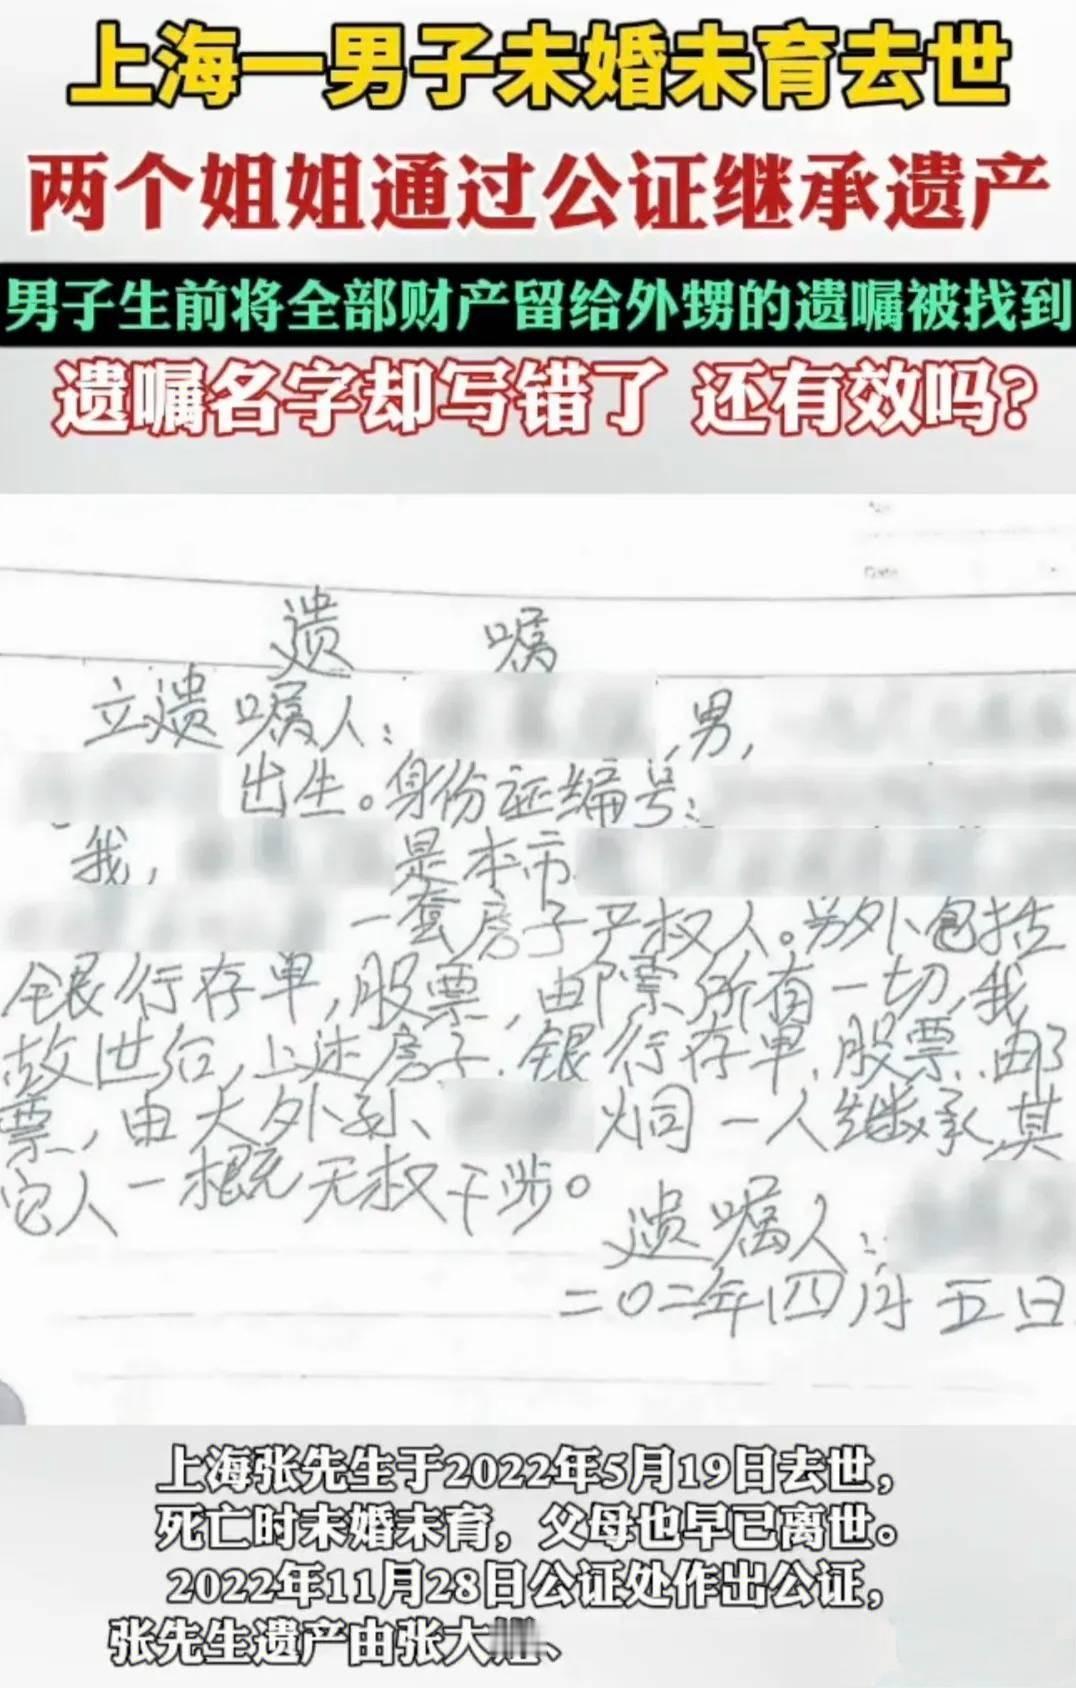 上海一男子未婚未育去世
两个姐姐通过公证继承遗产
男子生前将全部财产留给外甥的遗嘱被找到
遗嘱名字却写错了 还有效吗？
No
Date
遗 嘱
立遗嘱人： ，男，
出生。身份证编号：
我， 是本市
一套房子产权人。另外包括
银行存单，股票，邮票所有一切，我
故世后，上述房子、银行存单、股票、邮
票，由大外孙 炯一人继承，其
它人一概无权干涉。
遗嘱人：
二〇二年四月五日
上海张先生于2022年5月19日去世，
死亡时未婚未育，父母也早已离世。
2022年11月28日公证处作出公证，
张先生遗产由张大、